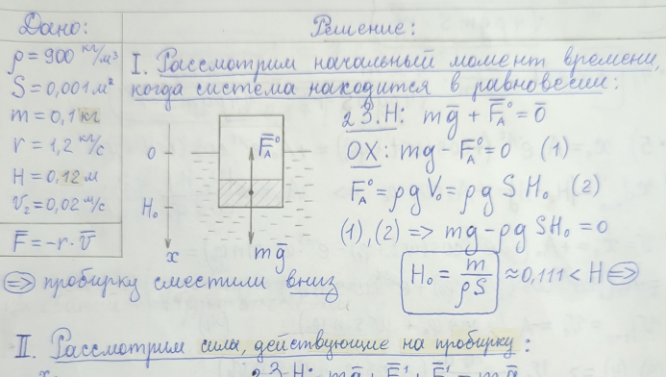 Дано: Решение:
ρ = 900 кг/м³
S = 0,001 м²
m = 0,1 кг
r = 1,2 кг/с
H = 0,12 м
V₂ = 0,02 м/с
F̅ = -r · V̅
I. Рассмотрим начальный момент времени,
когда система находится в равновесии:
0
H₀
x
F̅_A⁰
mg̅
2 З.Н: mg̅ + F̅_A⁰ = 0̅
OX: mg - F_A⁰ = 0 (1)
F_A⁰ = ρgV₀ = ρgSH₀ (2)
(1),(2) => mg - ρgSH₀ = 0
H₀ = m/ρS ≈ 0,111 < H =>
=> пробирку сместили вниз
II. Рассмотрим силы, действующие на пробирку:
x
2 З.Н: mg̅ +